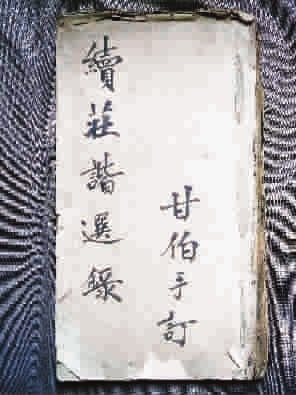 續莊諧選錄
甘伯手訂